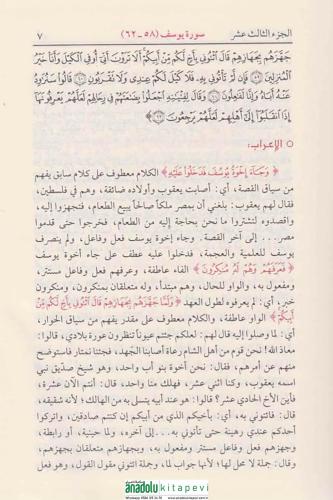 الجزء الثالث عشر سورة يوسف (٥٨ - ٦٢) ٧
جَهَّزَهُم بِجَهَازِهِمْ قَالَ ائْتُونِي بِأَخٍ لَّكُم مِّنْ أَبِيكُمْ أَلَا تَرَوْنَ أَنِّي أُوفِي الْكَيْلَ وَأَنَا خَيْرُ
الْمُنزِلِينَ ﴿٥٩﴾ فَإِن لَّمْ تَأْتُونِي بِهِ فَلَا كَيْلَ لَكُمْ عِندِي وَلَا تَقْرَبُونِ ﴿٦٠﴾ قَالُوا سَنُرَاوِدُ
عَنْهُ أَبَاهُ وَإِنَّا لَفَاعِلُونَ ﴿٦١﴾ وَقَالَ لِفِتْيَانِهِ اجْعَلُوا بِضَاعَتَهُمْ فِي رِحَالِهِمْ لَعَلَّهُمْ يَعْرِفُونَهَا
إِذَا انقَلَبُوا إِلَىٰ أَهْلِهِمْ لَعَلَّهُمْ يَرْجِعُونَ ﴿٦٢﴾
○ الإعراب:
﴿وَجَاءَ إِخْوَةُ يُوسُفَ فَدَخَلُوا عَلَيْهِ﴾ الكلام معطوف على كلام سابق يفهم
من سياق القصة، أي: أصابت يعقوب وأولاده ضائقة، وهم في فلسطين،
فقال لهم يعقوب: بلغني أن بمصر ملكاً صالحاً يبيع الطعام، فتجهزوا إليه،
واقصدوه لتشتروا ما نحن بحاجة إليه من الطعام، فخرجوا حتى قدموا
مصر... إلى آخر القصة. وجاء إخوة يوسف فعل وفاعل، ولم يتصرف
يوسف للعلمية والعجمة، فدخلوا عليه عطف على جاء أخوة يوسف
﴿فَعَرَفَهُمْ وَهُمْ لَهُ مُنكِرُونَ﴾ الفاء عاطفة، وعرفهم فعل وفاعل مستتر،
ومفعول به، والواو للحال، وهم مبتدأ، وله متعلقان بمنكرون، ومنكرون
خبر، أي: لم يعرفوه لطول العهد ﴿وَلَمَّا جَهَّزَهُم بِجَهَازِهِمْ قَالَ ائْتُونِي بِأَخٍ لَّكُم مِّنْ
أَبِيكُمْ﴾ الواو عاطفة، والكلام معطوف على مقدر يفهم من سياق الحوار،
أي: لما وصلوا إليه قال لهم: لعلكم جئتم عيوناً تنظرون عورة بلادي، قالوا:
معاذ الله! نحن قوم من أهل الشام رعاة أصابنا الجهد، فجئنا نمتار فاستوضح
منهم عن أمرهم، فقال: نحن أخوة بنو أب واحد، وهو شيخ صدّيق نبي
اسمه يعقوب، وكنا اثني عشر، فهلك منا واحد، قال: أنتم الآن عشرة،
فأين الأخ الحادي عشر؟ قالوا: هو عند أبيه يتسلى به من الهالك؛ لأنه شقيقه،
قال: فائتوني به، أي: بأخيكم الذي من أبيكم إن كنتم صادقين، واتركوا
أحدكم عندي رهينة حتى تأتوني به...إلى آخره، ولما حينية، أو رابطة،
وجهزهم فعل وفاعل مستتر ومفعول به، وبجهازهم متعلقان بجهزهم،
وقال: جملة لا محل لها؛ لأنها جواب لما، وجملة ائتوني مقول القول، وهو فعل
anadolukitapevi